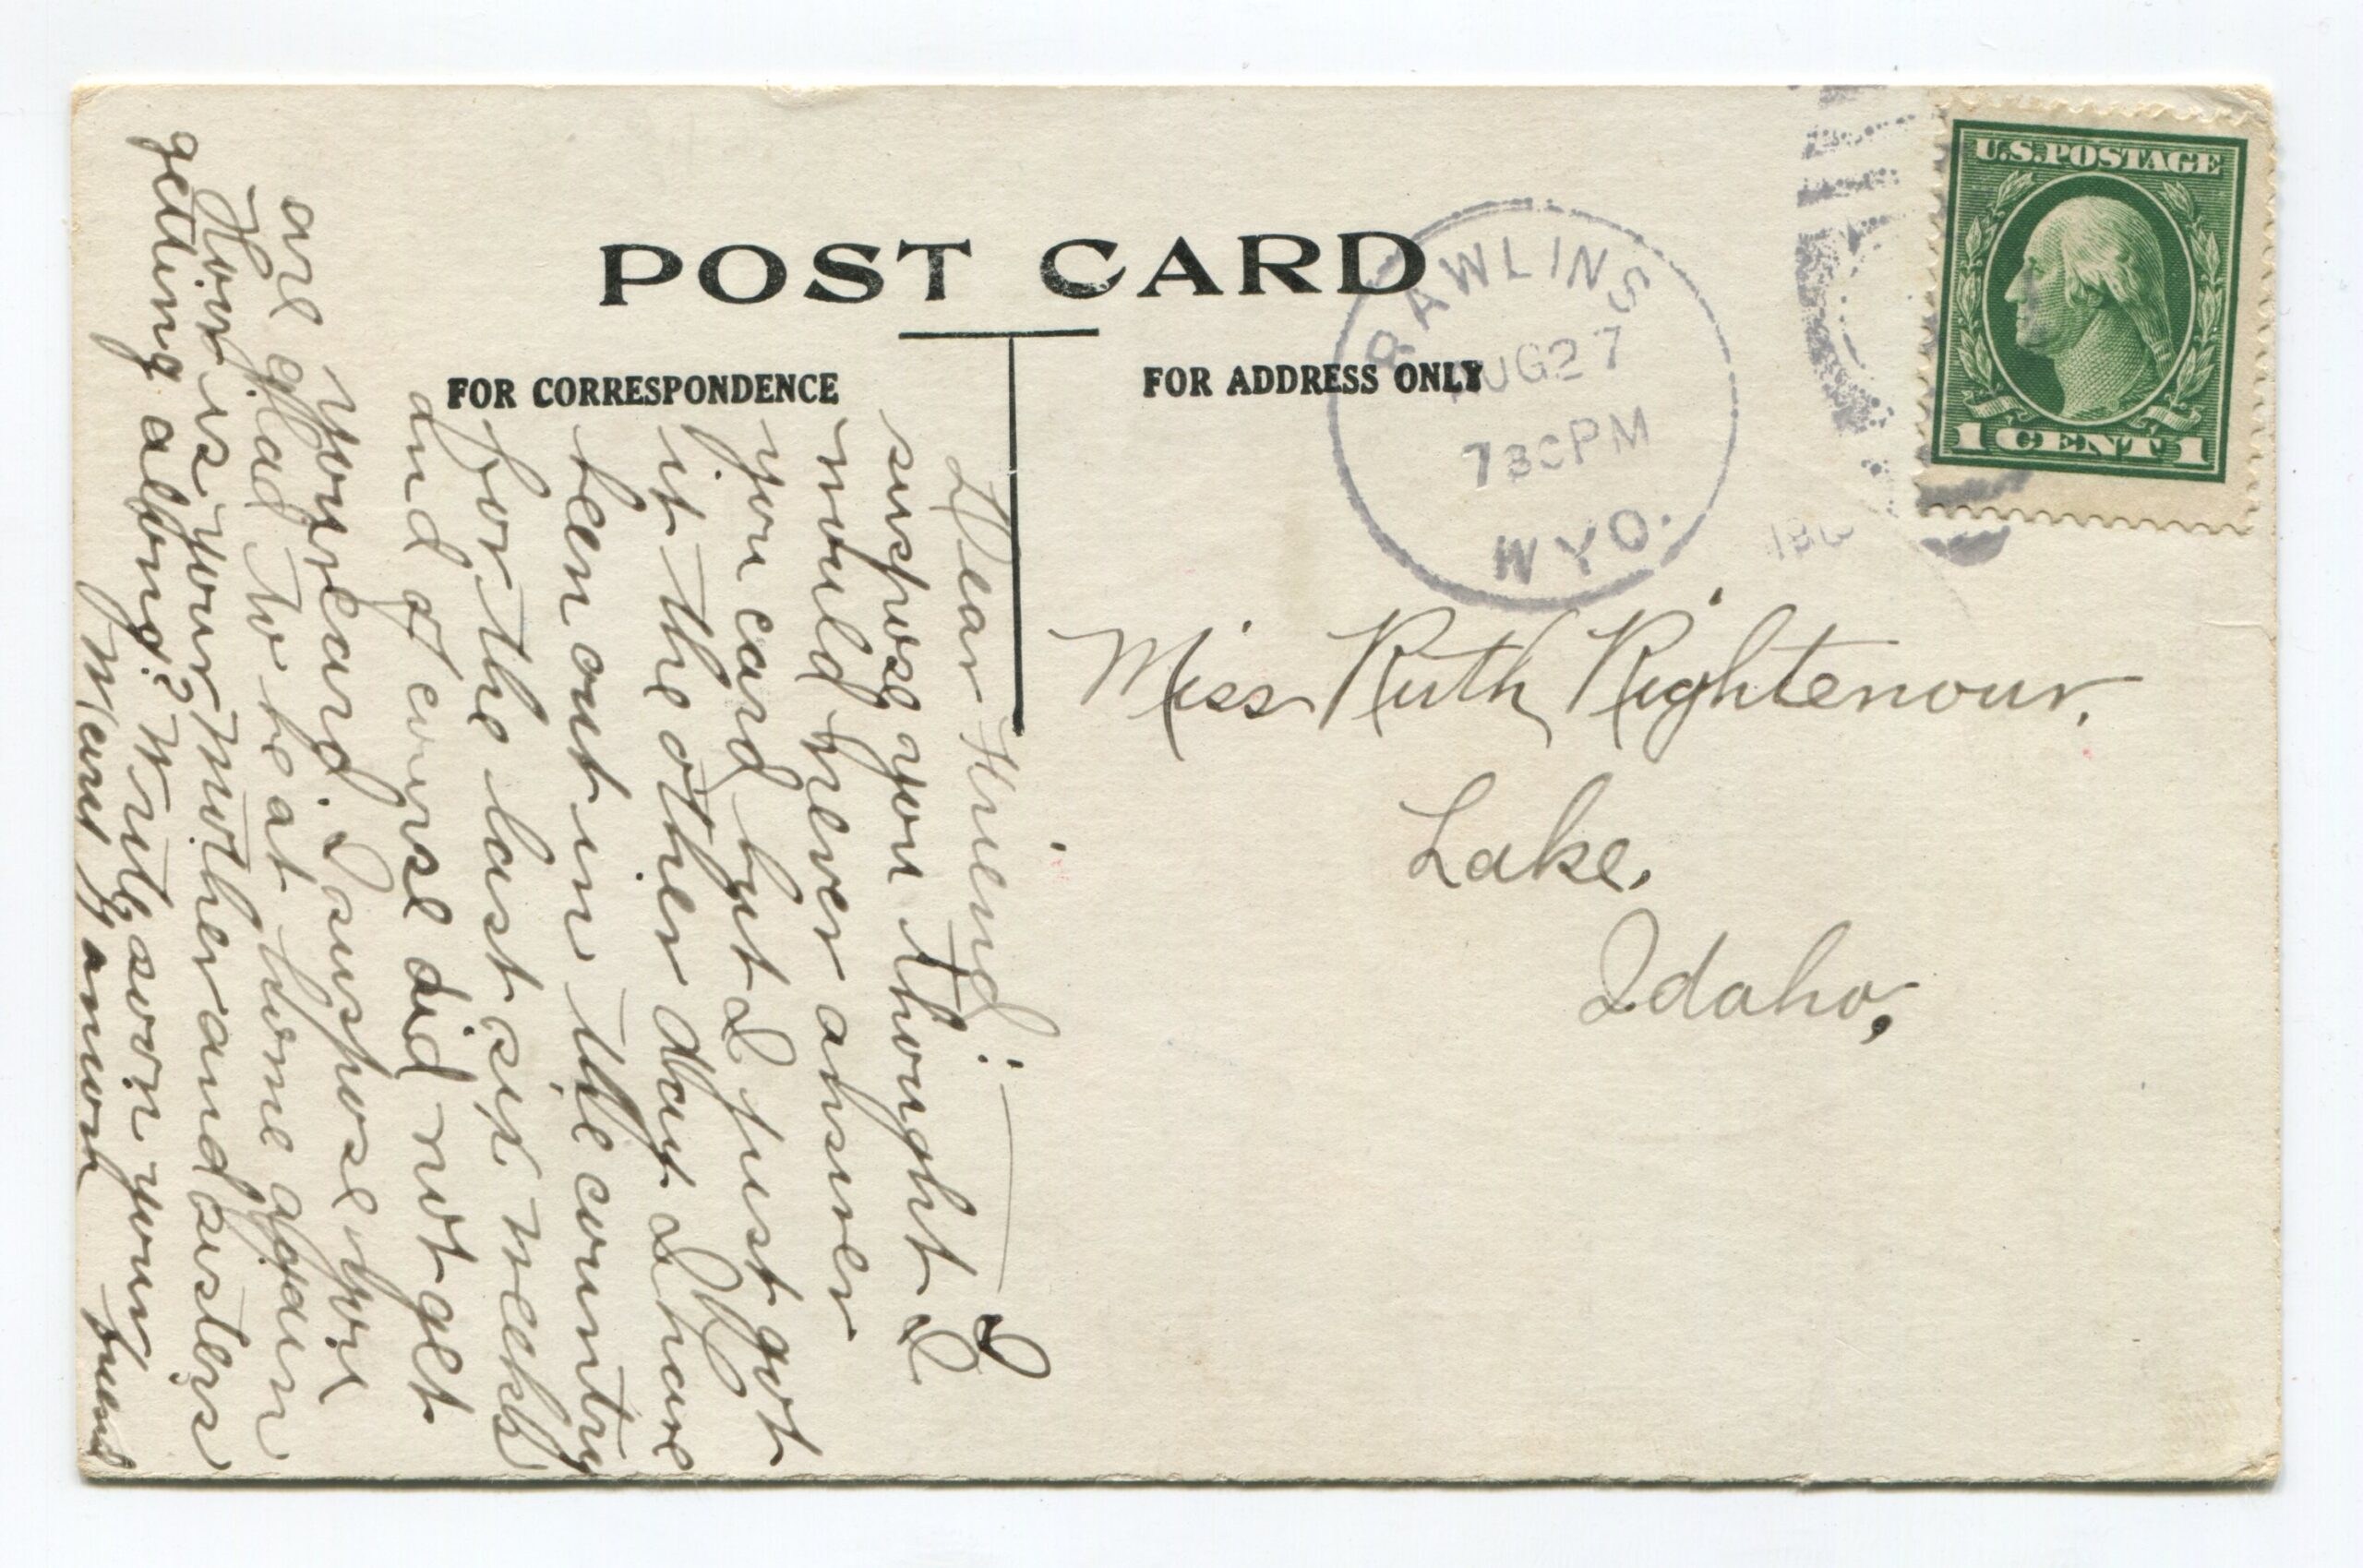 POST CARD
FOR CORRESPONDENCE
FOR ADDRESS ONLY
RAWLINS
AUG 27
730 PM
WYO.
U.S. POSTAGE
1 CENT 1
Miss Ruth Rightenour.
Lake.
Idaho.
Dear Friend: I
suspose you thought I
would never answer
you card but I just got
it the other day I have
been out in the country
for the last six weeks
and of course did not get
are your card. I suspose you
are glad to be at home again
How is your Mother and sisters
getting along? Write soon your
friend
Mary